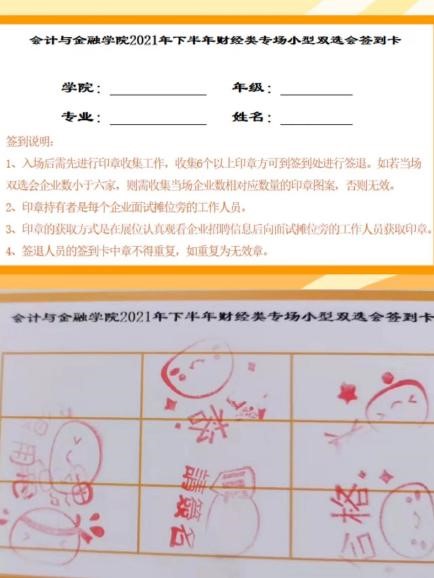 会计与金融学院2021年下半年财经类专场小型双选会签到卡
学院：____________ 年级：____________
专业：____________ 姓名：____________
签到说明：
1、入场后需先进行印章收集工作，收集6个以上印章方可到签到处进行签退。如若当场
双选会企业数小于六家，则需收集当场企业数相对应数量的印章图案，否则无效。
2、印章持有者是每个企业面试摊位旁的工作人员。
3、印章的获取方式是在展位认真观看企业招聘信息后向面试摊位旁的工作人员获取印章。
4、签退人员的签到卡中章不得重复，如重复为无效章。
会计与金融学院2021年下半年财经类专场小型双选会签到卡
請簽名
合格